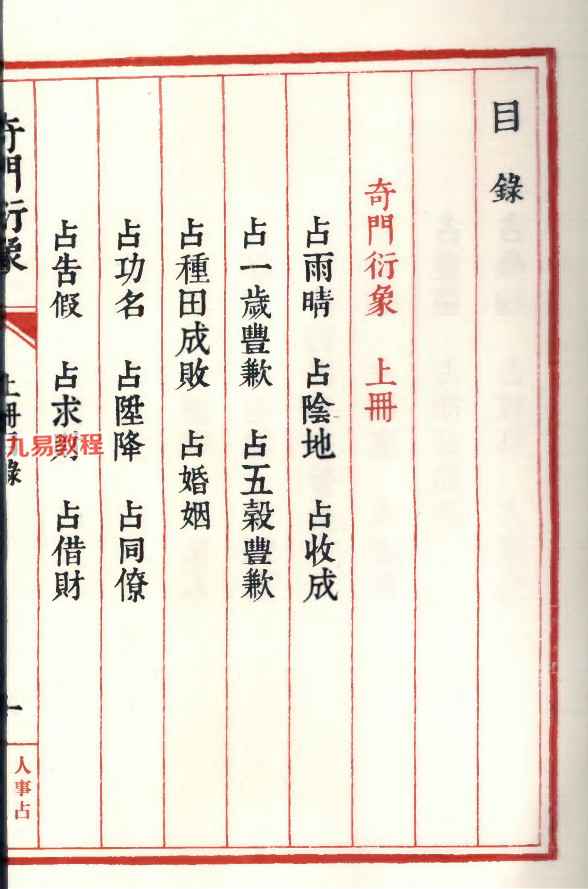 目錄
奇門衍象 上冊
占雨晴 占陰地 占收成
占一歲豐歉 占五穀豐歉
占種田成敗 占婚姻
占功名 占陞降 占同僚
占告假 占求財 占借財
奇門衍象
上冊目錄
一
人事占
九易教程